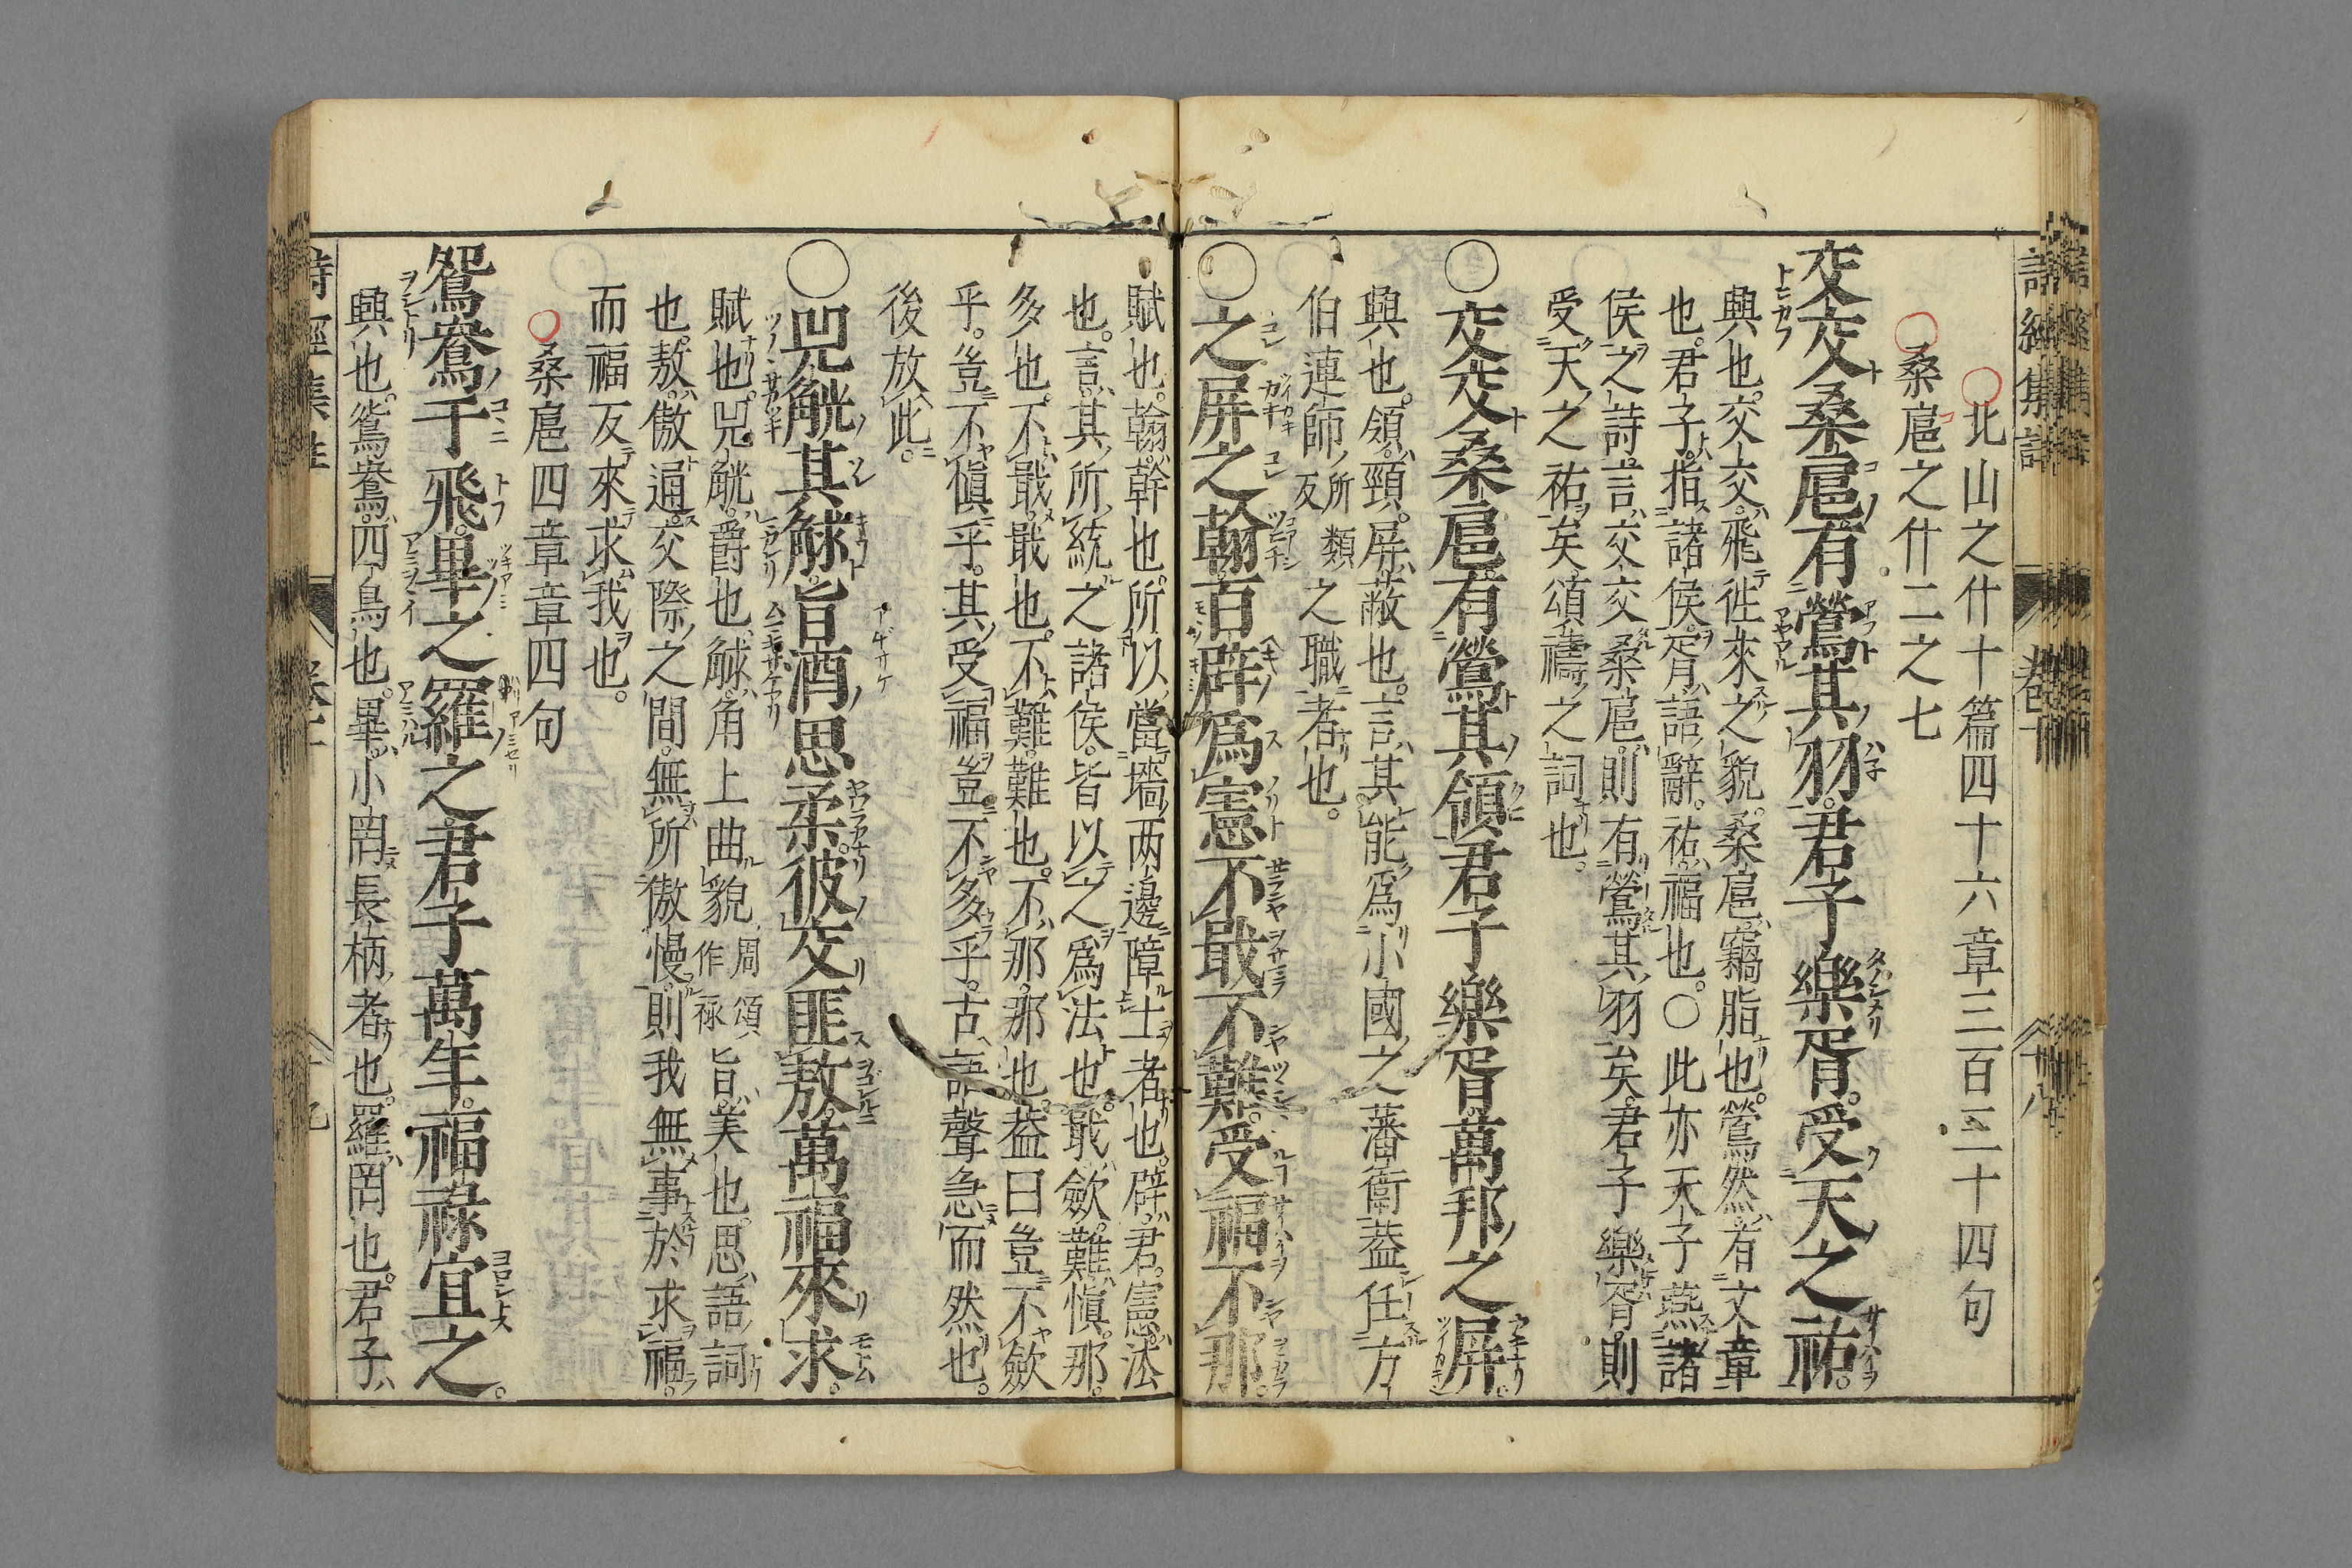 北山之什十篇四十六章三百三十四句
桑扈之什二之七
交交桑扈有鶯其羽君子樂胥受天之祜
興也交交飛徃來之貌桑扈竊脂也鶯然有文章
也君子指諸侯胥語辭祜福也○此亦天子燕諸
侯之詩言交交桑扈則有鶯其羽矣君子樂胥則
受天之祜矣頌禱之詞也
○交交桑扈有鶯其領君子樂胥萬邦之屏
興也領頸屏蔽也言其能爲小國之藩衛蓋任方
伯連師所類反之職者也
○之屏之翰百辟爲憲不戢不難受福不那
賦也翰幹也所以當墻両邊障土者也辟君憲法
也言其所統之諸侯皆以之爲法也戢斂難愼那
多也不戢戢也不難難也不那那也蓋曰豈不斂
乎豈不愼乎其受福豈不多乎古語聲急而然也
後放此
○兕觥其觩旨酒思柔彼交匪敖萬福來求
賦也兕觥爵也觩角上曲貌周頌作㭒旨美也思語詞
也敖傲通交際之間無所傲慢則我無事於求福
而福反來求我也
桑扈四章章四句
鴛鴦于飛畢之羅之君子萬年福祿宜之
興也鴛鴦匹鳥也畢小罔長柄者也羅罔也君子